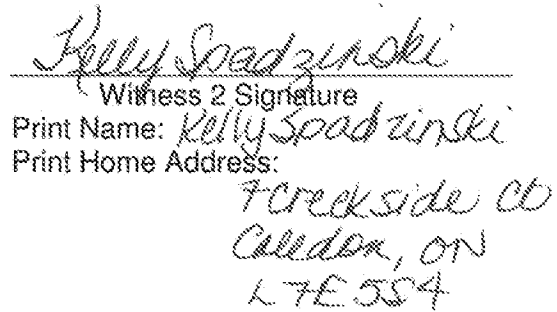 Kelly Spadzinski
Witness 2 Signature
Print Name: Kelly Spadzinski
Print Home Address:
7 Creekside
Caledon, ON
L7E 5S4